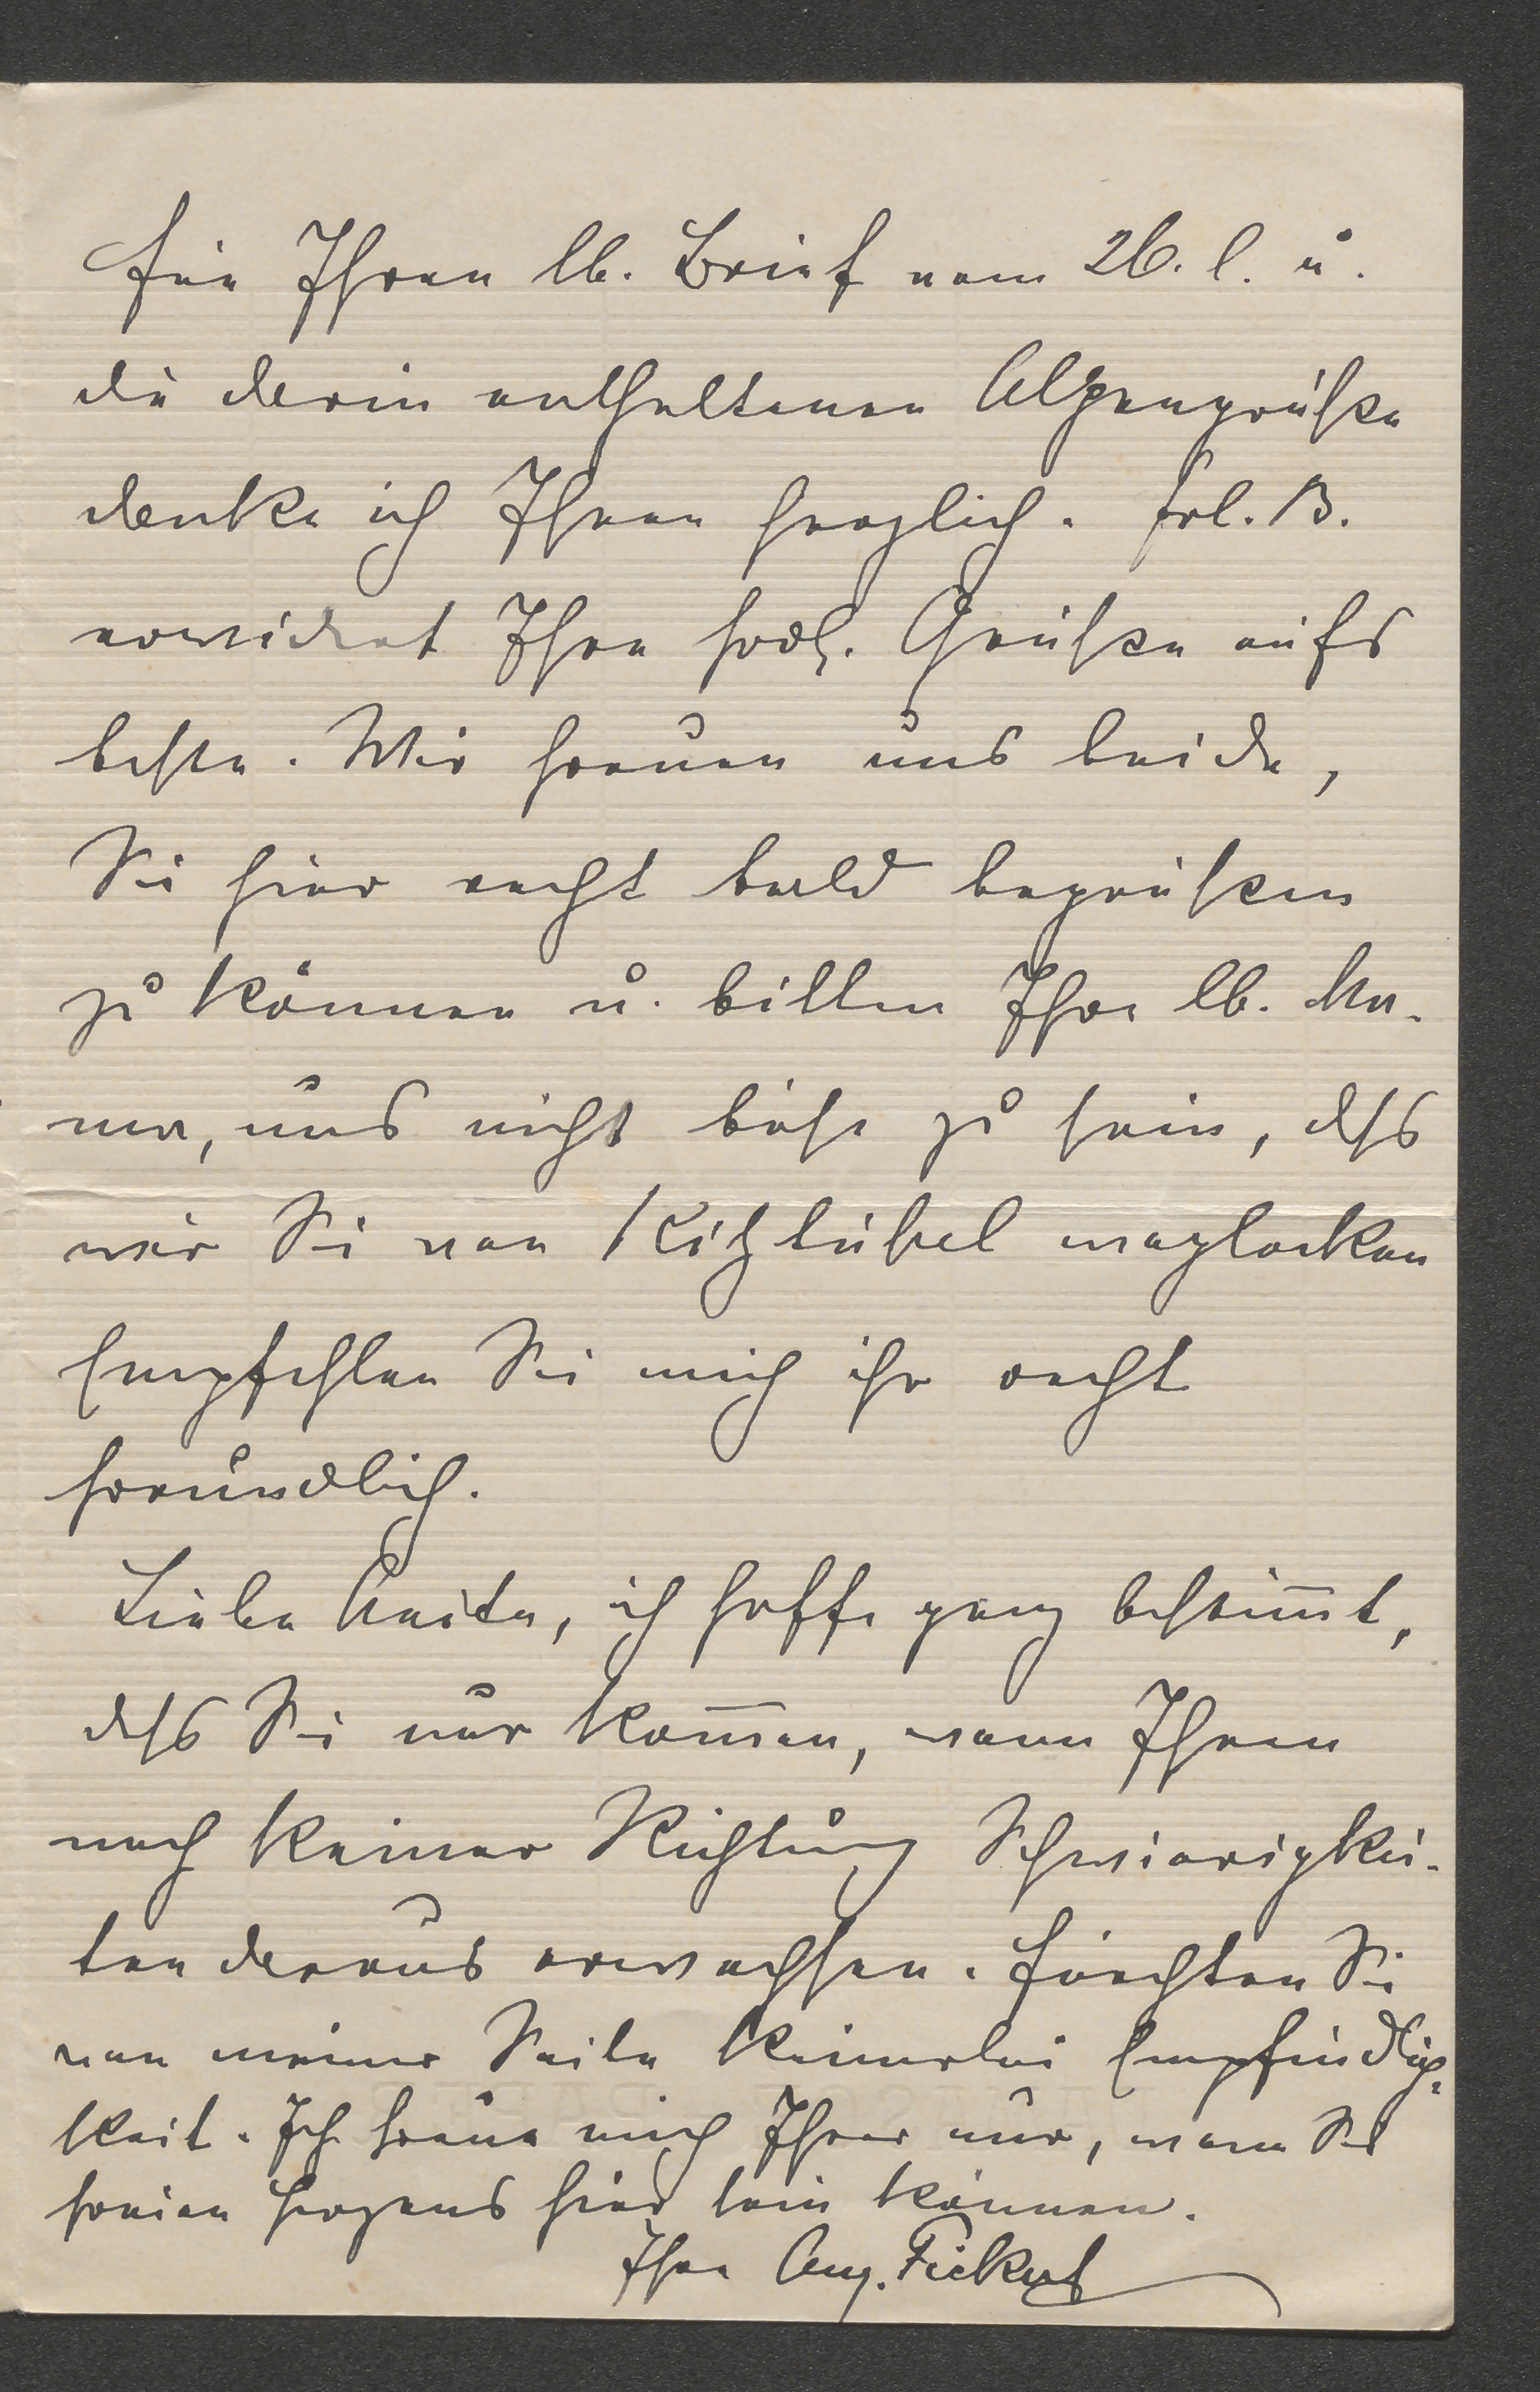 Für Ihren lb. Brief vom 26. l. u.
die darin enthaltenen Alpengrüße
danke ich Ihnen herzlich. Frl. B.
erwidert Ihre hrzl. Grüße aufs
beste. Wir freuen uns beide,
Sie hier recht bald begrüßen
zu können u. bitten Ihre lb. Ma-
ma, uns nicht böse zu sein, dſs
wir Sie von Kitzbühel weglocken
Empfehlen Sie mich ihr recht
freundlich.
Liebe Anita, ich hoffe ganz bestim̄t,
dſs Sie nur kom̄en, wenn Ihnen
nach keiner Richtung Schwierigkei-
ten daraus erwachsen. Fürchten Sie
von meiner Seite keinerlei Empfindlich-
keit. Ich freue mich Ihrer nur, wenn Sie
freien Herzens hier sein können.
Ihre Aug. Fickert